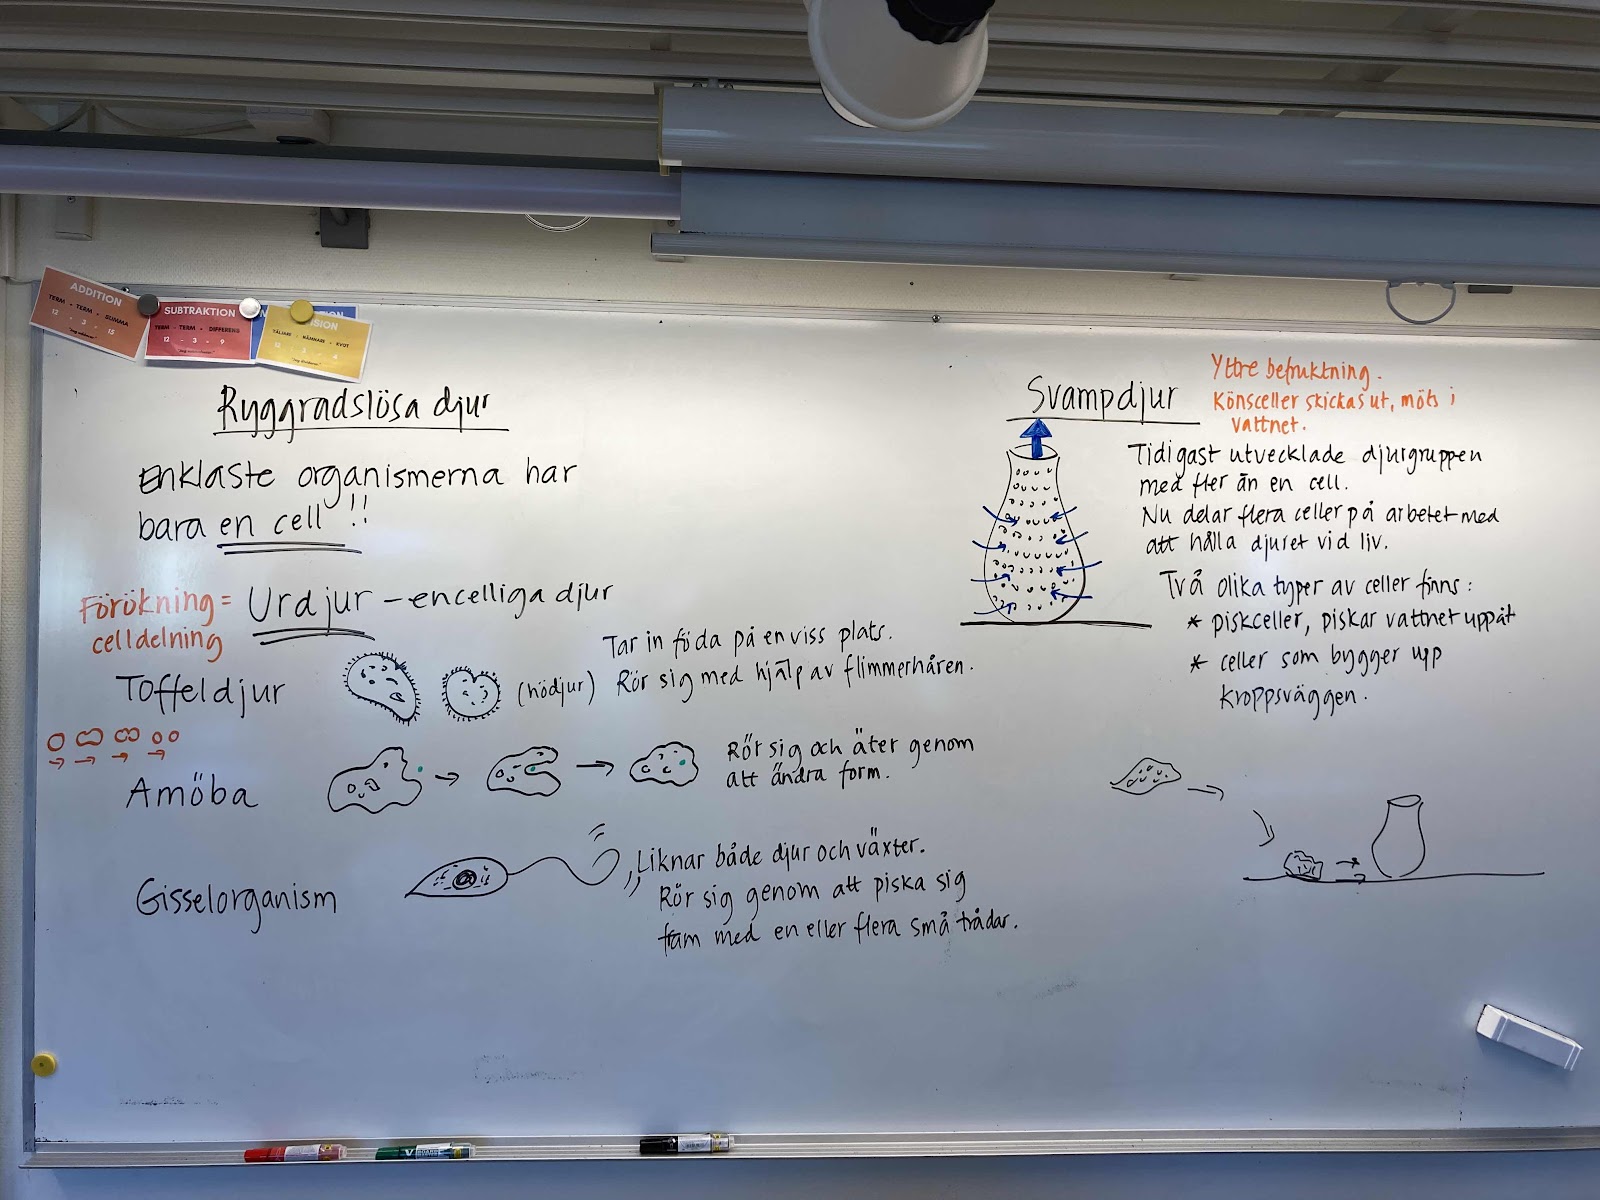 ADDITION
TERM + TERM = SUMMA
12 + 3 = 15
SUBTRAKTION
TERM - TERM = DIFFERENS
12 - 3 = 9
TÄLJARE NÄMNARE KVOT
Ryggradslösa djur
Enklaste organismerna har
bara en cell !!
Förökning =
celldelning
Urdjur – encelliga djur
Toffeldjur
(hödjur)
Tar in föda på en viss plats.
Rör sig med hjälp av flimmerhåren.
Amöba
Rör sig och äter genom
att ändra form.
Gisselorganism
Liknar både djur och växter.
Rör sig genom att piska sig
fram med en eller flera små trådar.
Svampdjur
Yttre befruktning.
Könsceller skickas ut, möts i
vattnet.
Tidigast utvecklade djurgruppen
med fler än en cell.
Nu delar flera celler på arbetet med
att hålla djuret vid liv.
Två olika typer av celler finns:
* piskceller, piskar vattnet uppåt
* celler som bygger upp
kroppsväggen.